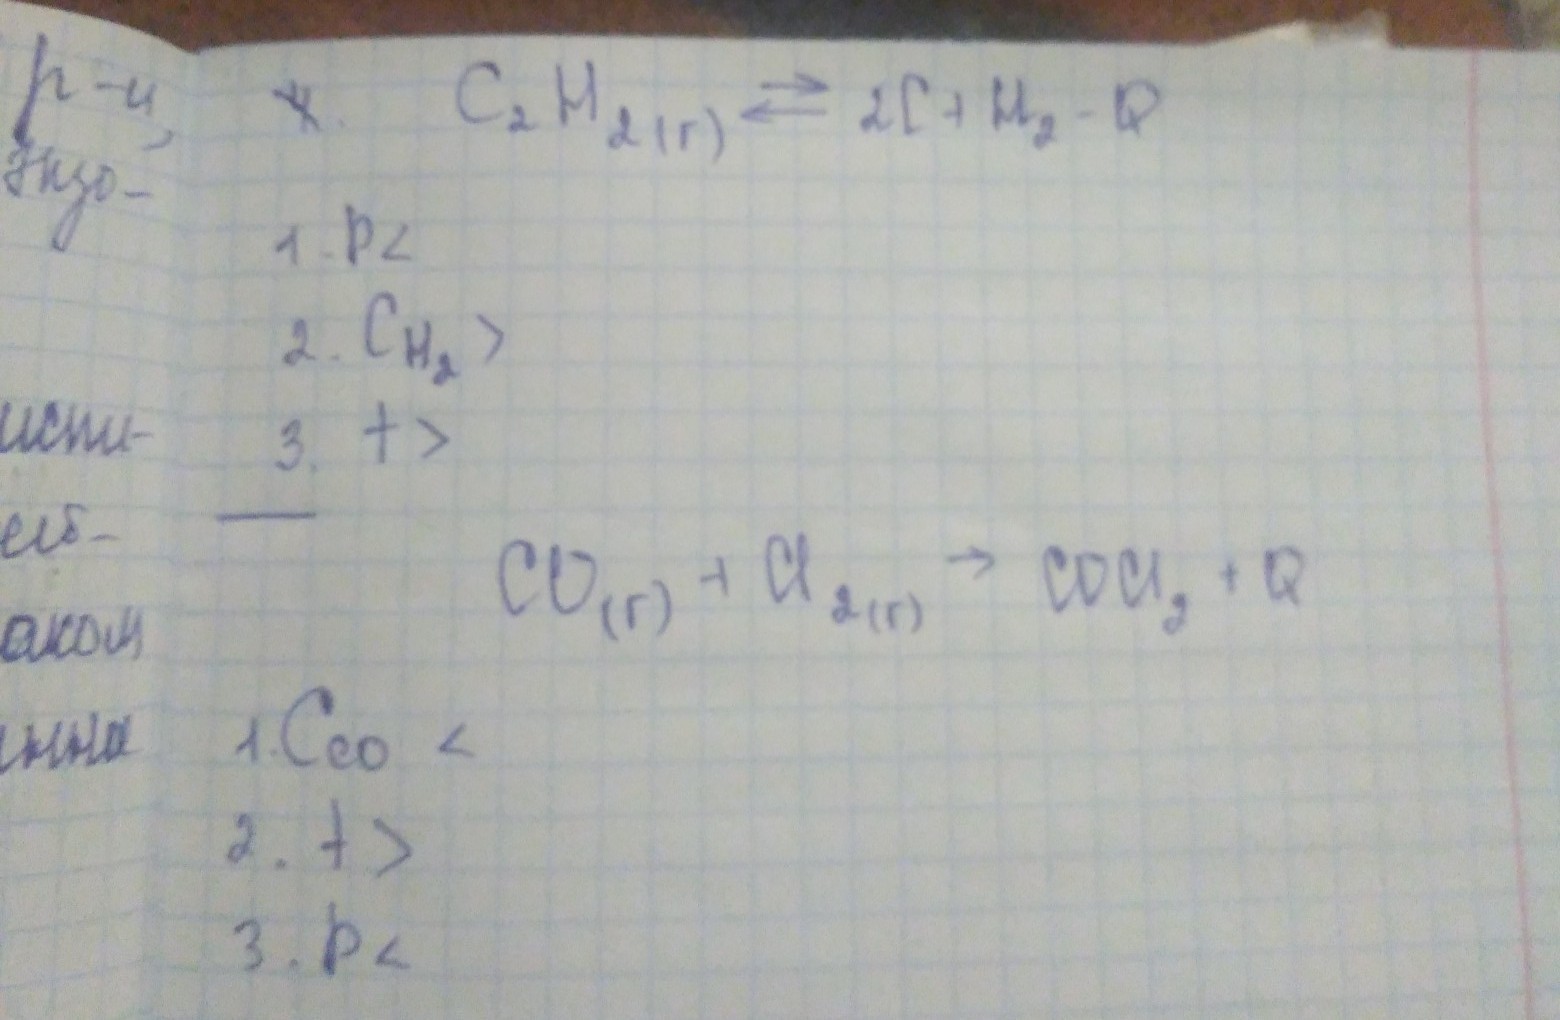 р-и,
экзо-
х. C₂H₂(г) ⇄ 2C + H₂ - Q
1. P<
2. C_H₂ >
3. t >
испи-
аком
CO(г) + Cl₂(г) → COCl₂ + Q
1. C_CO <
2. t >
3. P <